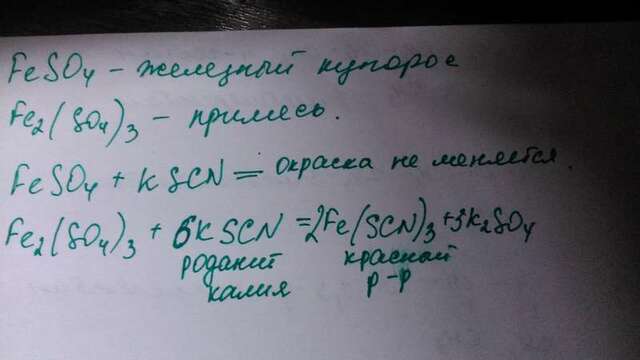 FeSO4 - железный купорос
Fe2(SO4)3 - примесь.
FeSO4 + KSCN = окраска не меняется.
Fe2(SO4)3 + 6KSCN = 2Fe(SCN)3 + 3K2SO4
роданит красный
калия р-р